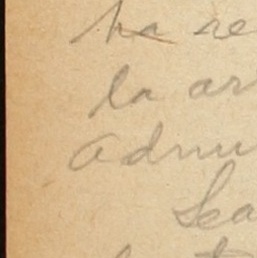 ha re
la ar
Admi
Sea